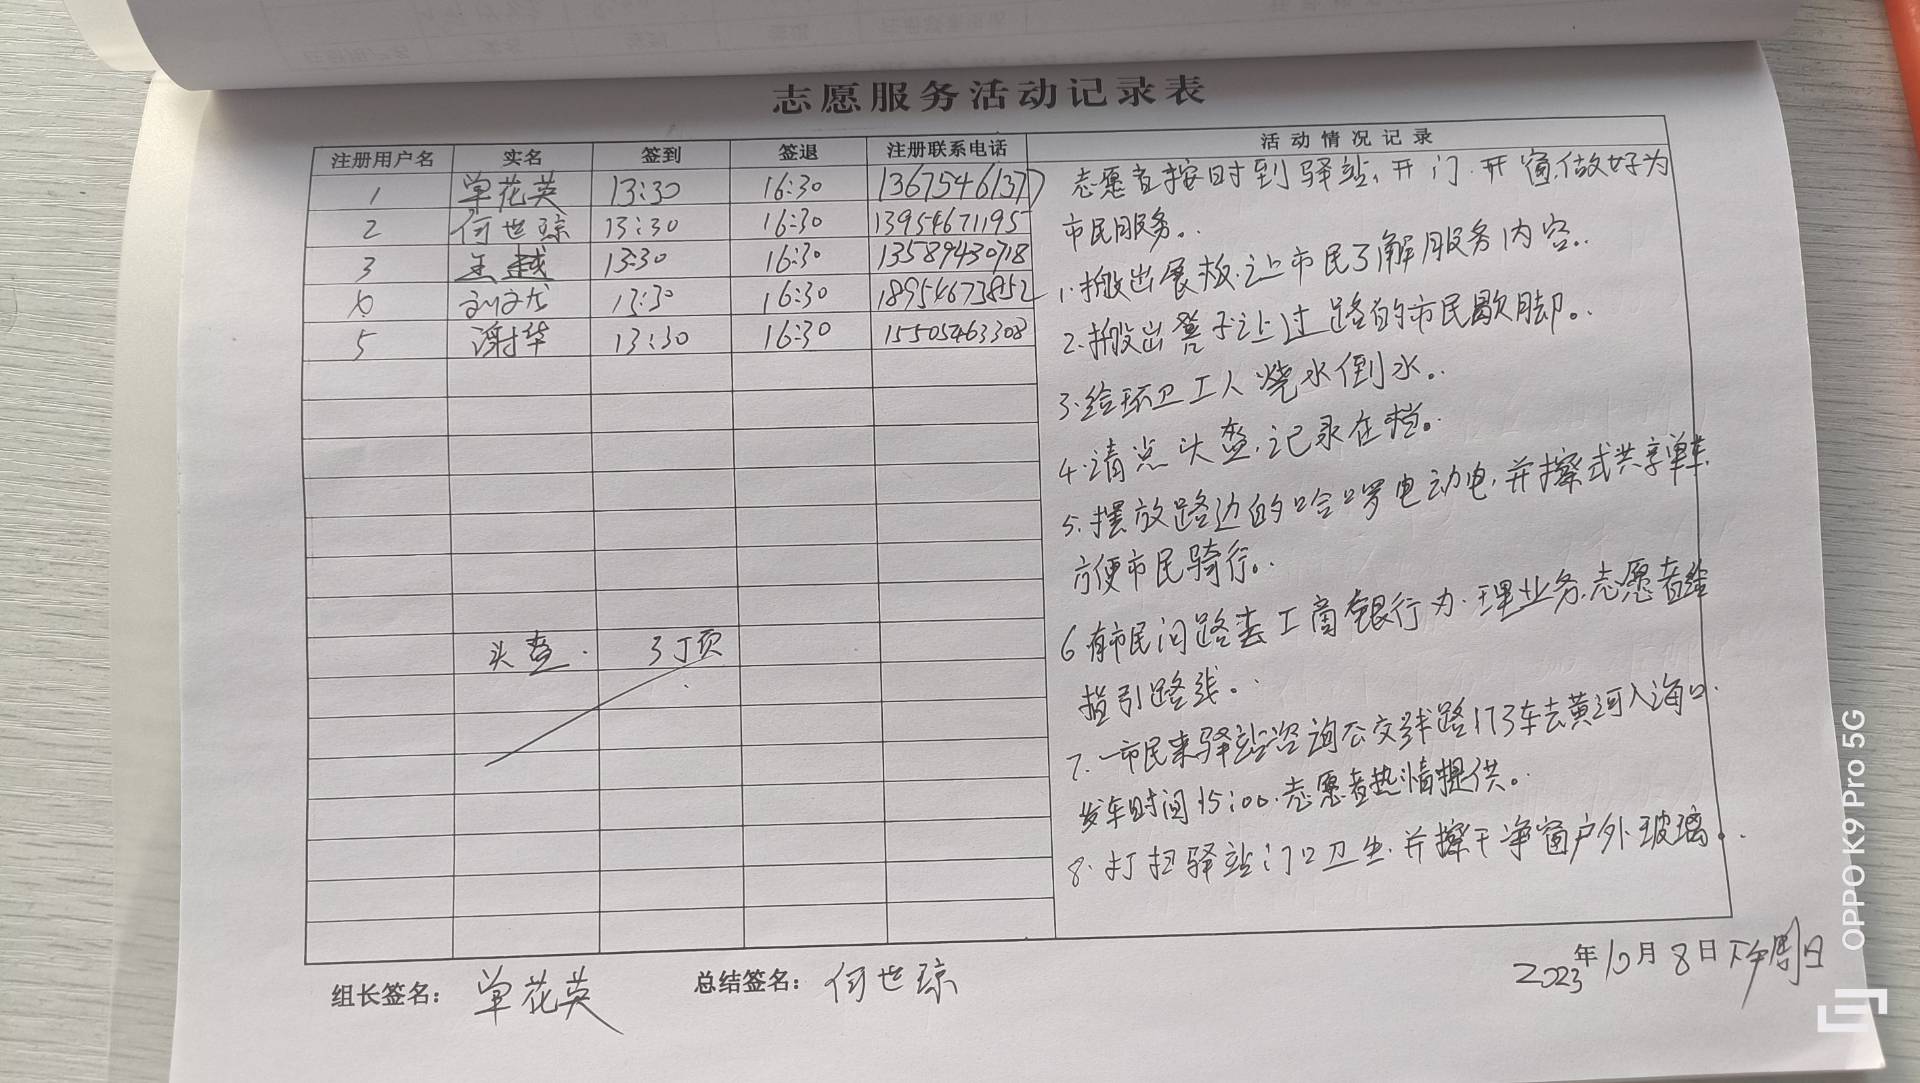 志愿服务活动记录表
注册用户名 实名 签到 签退 注册联系电话 活动情况记录
1 单花英 13:30 16:30 13675461377
2 何世琼 13:30 16:30 13954671195
3 越 13:30 16:30 13589430718
4 刘文龙 13:30 16:30 18954673852
5 谢华 13:30 16:30 15505463308
头盔. 3顶
志愿者按时到驿站,开门.开窗,做好为
市民服务..
1.搬出展板.让市民了解服务内容..
2.搬出凳子让过路的市民歇脚..
3.给环卫工人烧水倒水..
4.清点头盔.记录在档..
5.摆放路边的哈啰电动电,并擦式共享单车.
方便市民骑行..
6有市民问路去工商银行办.理业务.志愿者给
指引路线..
7.一市民来驿站咨询公交线路173车去黄河入海口.
发车时间15:00.志愿者热情提供..
8.打扫驿站门口卫生.并擦干净窗户外玻璃..
组长签名: 单花英 总结签名: 何世琼
2023年10月8日下午周日
OPPO K9 Pro 5G